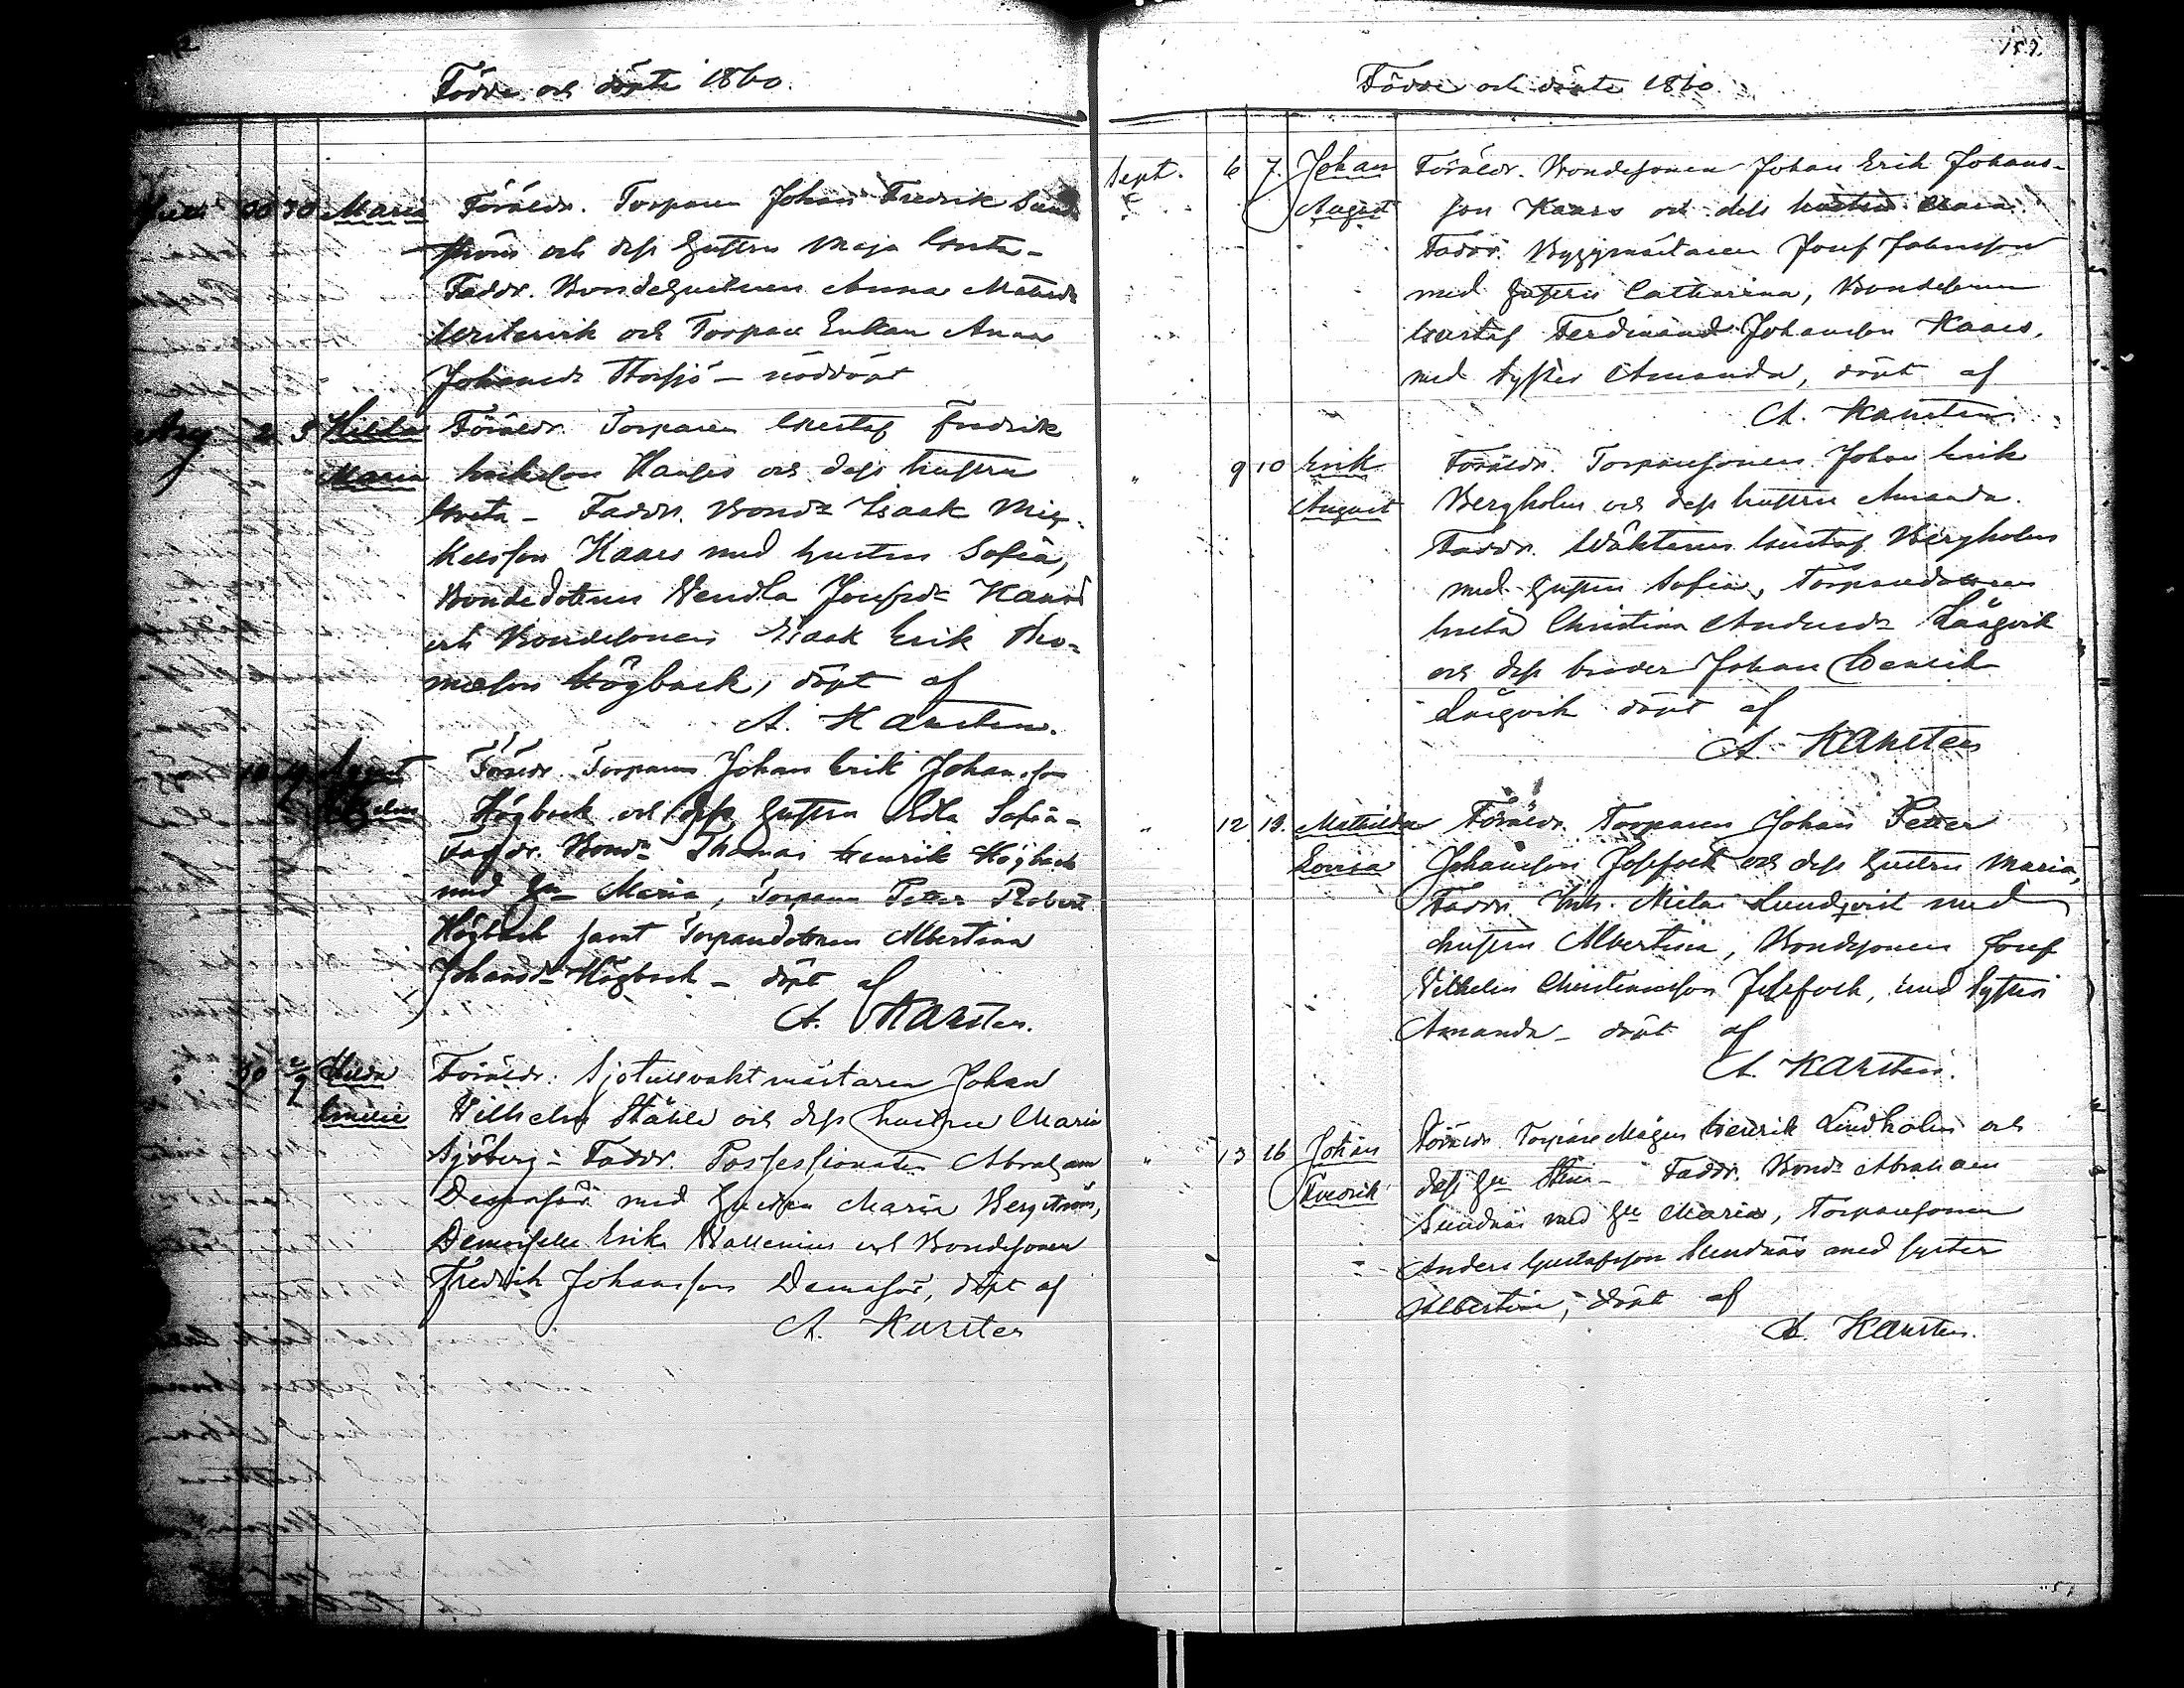 Födde och döpte 1860.
30 30 Maria Föräldr. Torparen Johan Fredrik Sund-
ström och dess hustru Maja Greta -
Faddr. Bondehustrun Anna Matsdr
Westervik och Torpare Enkan Anna
Johansdr Storsjö - nöddöpt
Aug 2 5 Hilda Föräldr. Torparen Gustaf Fredrik
Maria Kanses och dess hustru
Greta - Faddr. Bond. Isaak Mic-
kelsson Kaars med hustru Sofia,
Bondedottren Wendla Josefsdr Kaars
och Bondesonen Isaak Erik Tho-
masson Högback, döpt af
A. Karsten.
18 19 August Föräldr. Torparen Johan Erik Johansson
Wilhelm Högback och dess hustru Ulla Sofia -
Faddr. Bond. Thomas Henrik Högback
med hu Maria, Torparen Petter Robert
Högback samt Torpardottren Albertina
Johansdr Högback - döpt af
A. Karsten.
30 2/9 Hilda Föräldr: Sjötullsvaktmästaren Johan
Emilie Wilhelm Ståhle och dess hustru Maria
Sjöberg - Faddr. Possessionaten Abraham
med hustru Maria Bergström,
Demoiselle Erika Wallenius och Bondesonen
Fredrik Johansson döpt af
A. Karsten
Födde och döpte 1860.
Sept. 6 7. Johan Föräldr. Bondesonen Johan Erik Johans-
August son Kaars och dess hustru Maria
Faddr. Byggmästaren Josef Johansson
med hustru Catharina, Bondesonen
Gustaf Ferdinand Johansson Kaars,
med syster Amanda, döpt af
A. Karsten
" 9 10 Erik Föräldr. Torparesonen Johan Erik
August Bergholm och dess hustru Amanda.
Faddr. Wäktaren Gustaf Bergholm
med hustru Sofia, Torparedottren
Greta Christina Andersdr Långvik
och dess broder Johan Henrik
Långvik döpt af
A. Karsten
" 12 13. Mathilda Föräldr. Torparen Johan Petter
Lovisa Johansson och dess hustru Maria,
Faddr. Lundqvist med
hustru Albertina, Bondesonen Josef
Wilhelm Christiansson med syster
Amanda - döpt af
A. Karsten.
" 13 16 Johan Föräldr Torpare Mågen Henrik Lindholm och
Fredrik dess hu Stina - Faddr. Bond. Abraham
Sundnäs med hu Maria, Torparesonen
Anders Gustafsson Sundnäs med syster
Albertina, döpt af
A. Karsten.